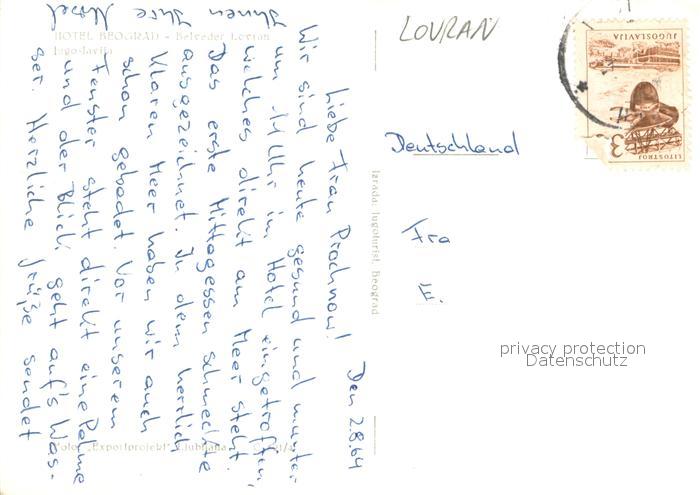 Den 2.8.64
Liebe Frau Prochnow!
Wir sind heute gesund und munter
um 14 Uhr im Hotel eingetroffen,
welches direkt am Meer steht.
Das erste Mittagessen schmeckte
ausgezeichnet. In dem herrlich
klaren Meer haben wir auch
schon gebadet. Vor unserem
Fenster steht direkt eine Palme
und der Blick geht auf's Was-
ser. Herzliche Grüße sendet
Ihnen Ihre
HOTEL BEOGRAD - Belveder Lovran
Jugoslavija
Foto „Exportprojekt" Ljubljana
Izrada: Jugoturist, Beograd
LOVRAN
Deutschland
Fra
E.
JUGOSLAVIJA
LITOSTROJ
3
privacy protection
Datenschutz